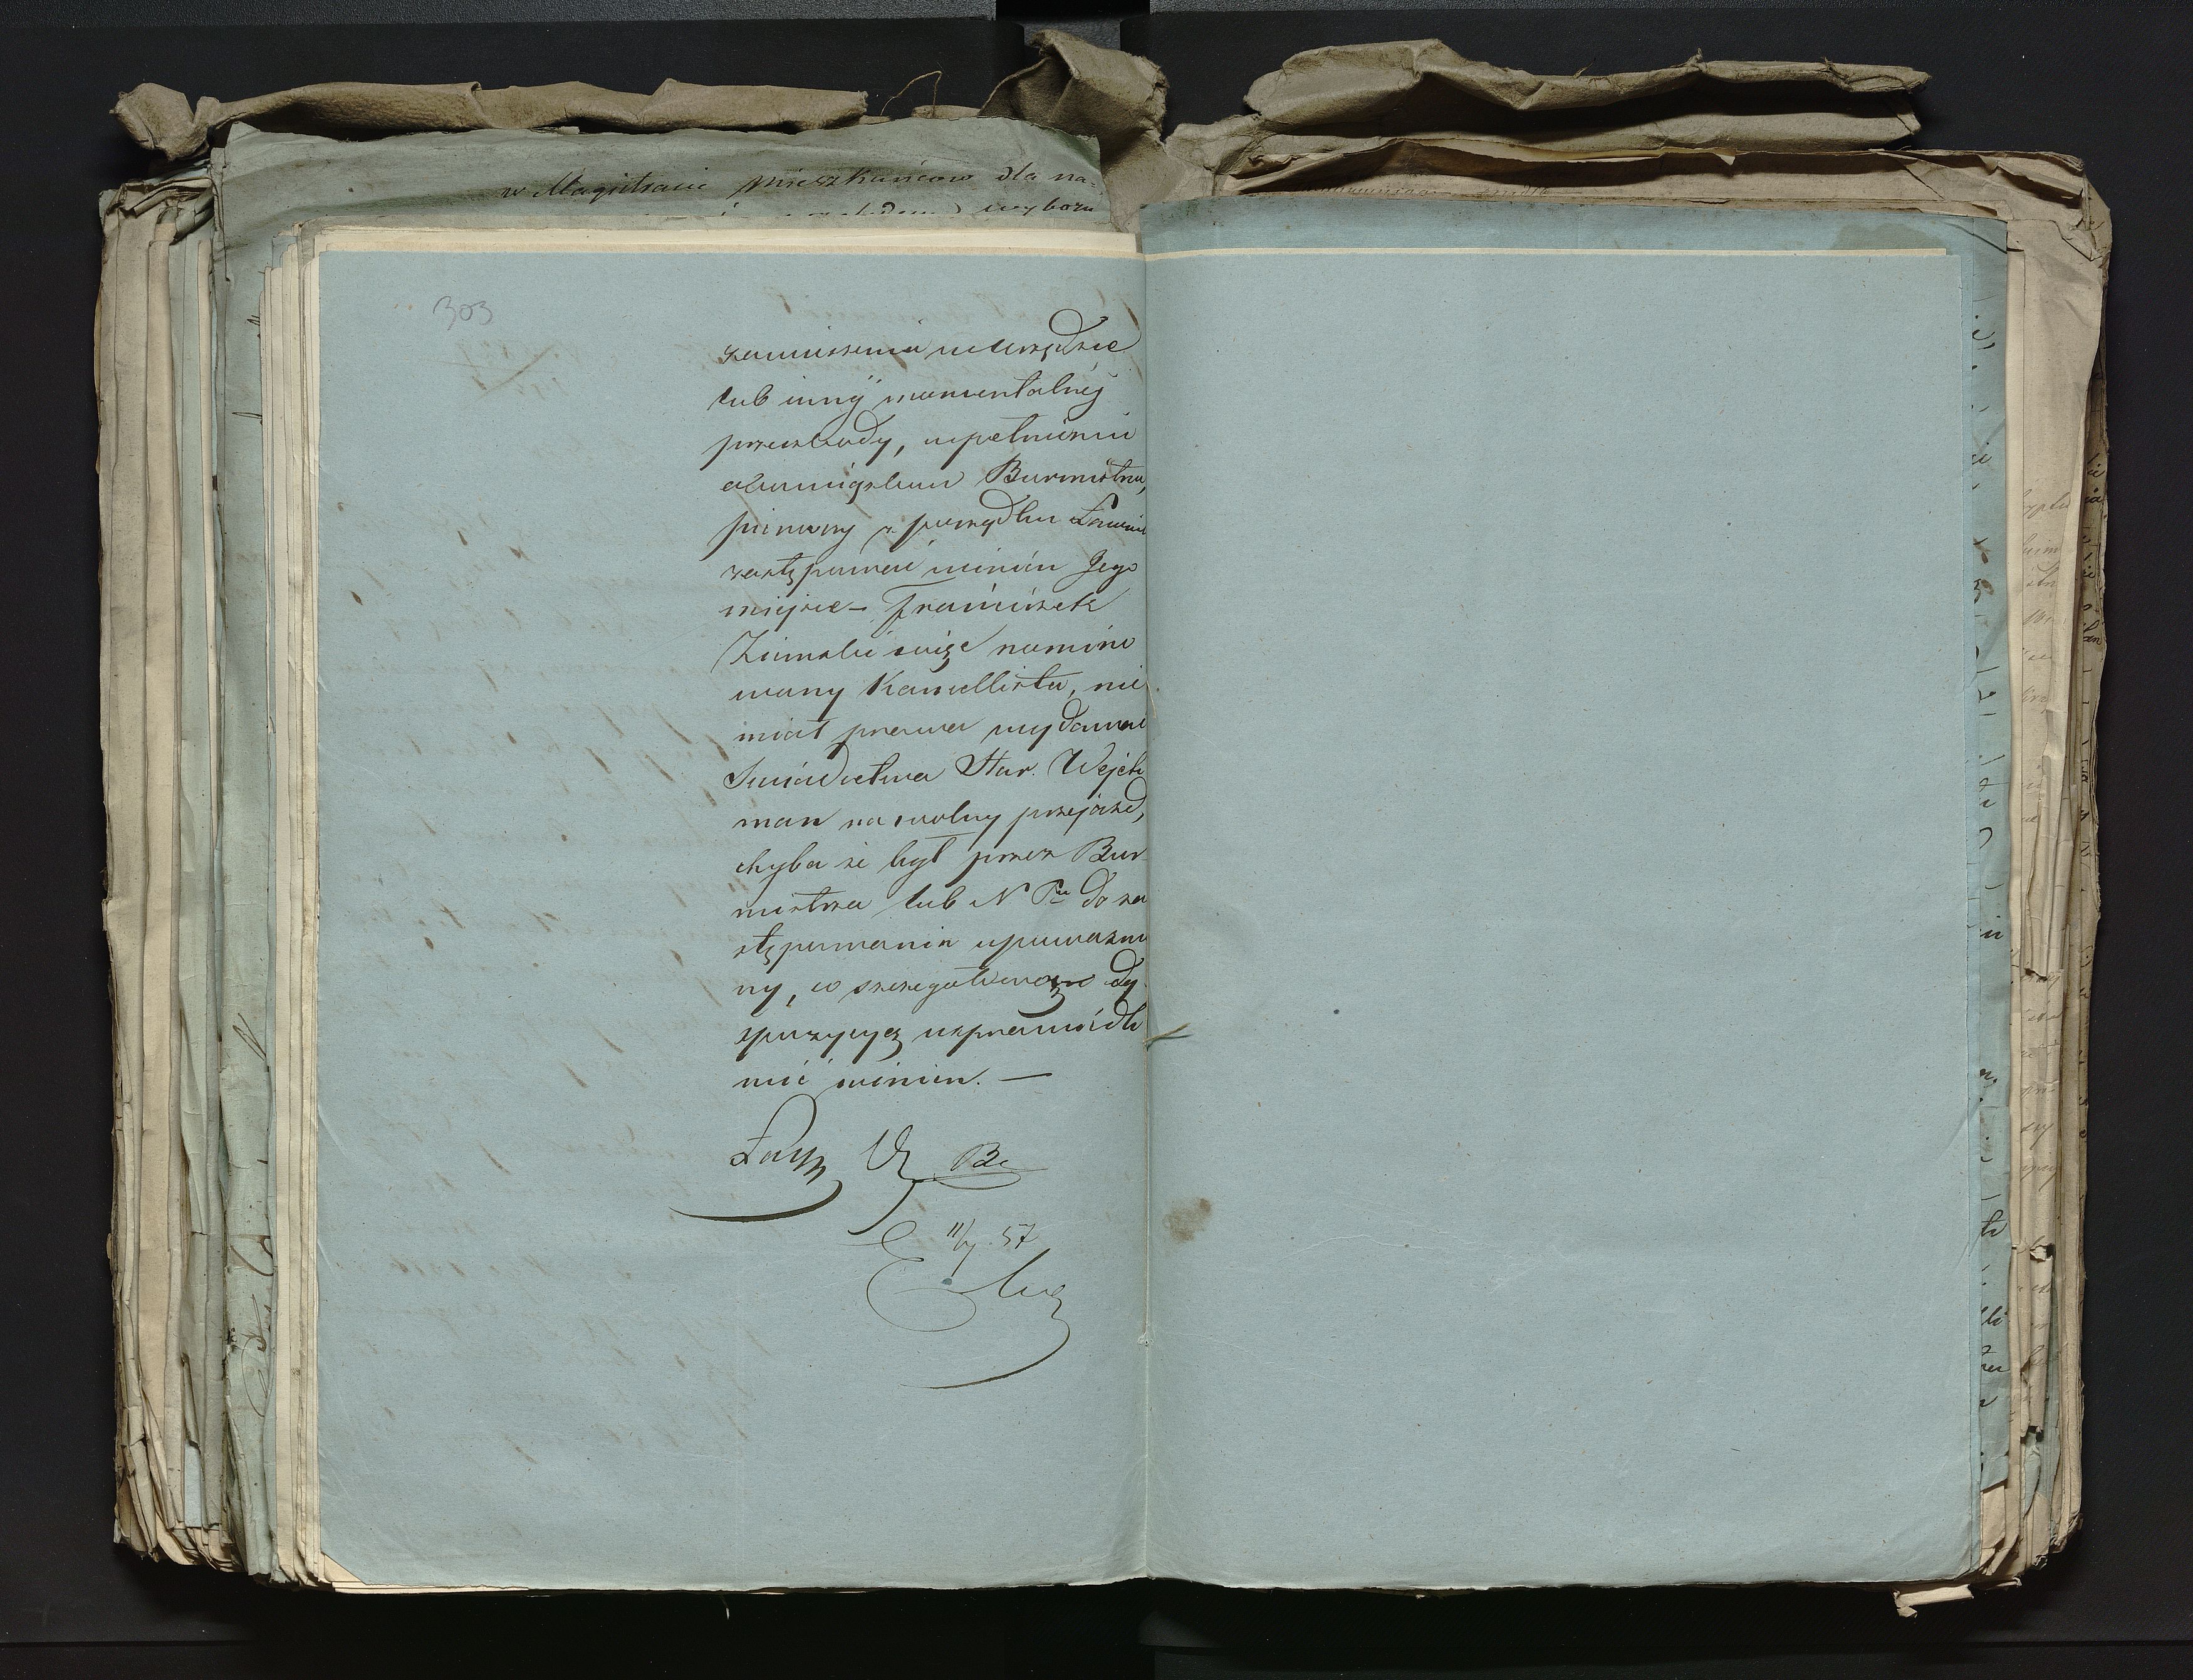 w Magistracie mieszkańców dla na-
wyboru
303
zawieszenia w urzędzie
lub innÿ momentalnéj
przeszkody, w pełnieniu
obowiązków Burmistrza,
piérwszy z porządku Ławnik
zastępować winién Jego
miejsce – Franciszek
Ziemski świéżo nomino
wany Kancellista, nie
miał prawa wydawać
Swiadectwa Star. Wejch
man na wolny przejazd,
chyba że był przez Bur
mistrza lub N Pu do za
stępowania upoważnio
ny, co szczegółowo dy
spozycyą usprawiédli
wić winién. —
11/7 57